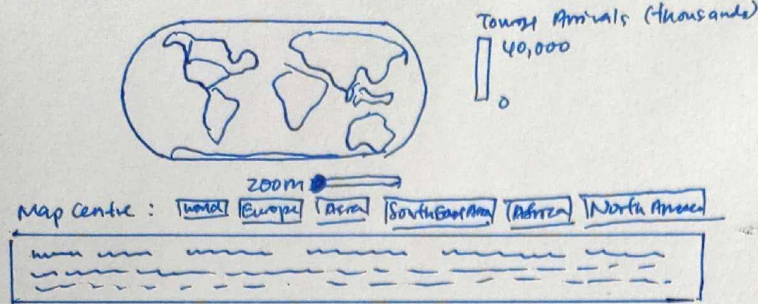 Tourist Arrivals (thousands)
40,000
0
zoom
Map Centre : World Europe Asia South East Asia Africa North America